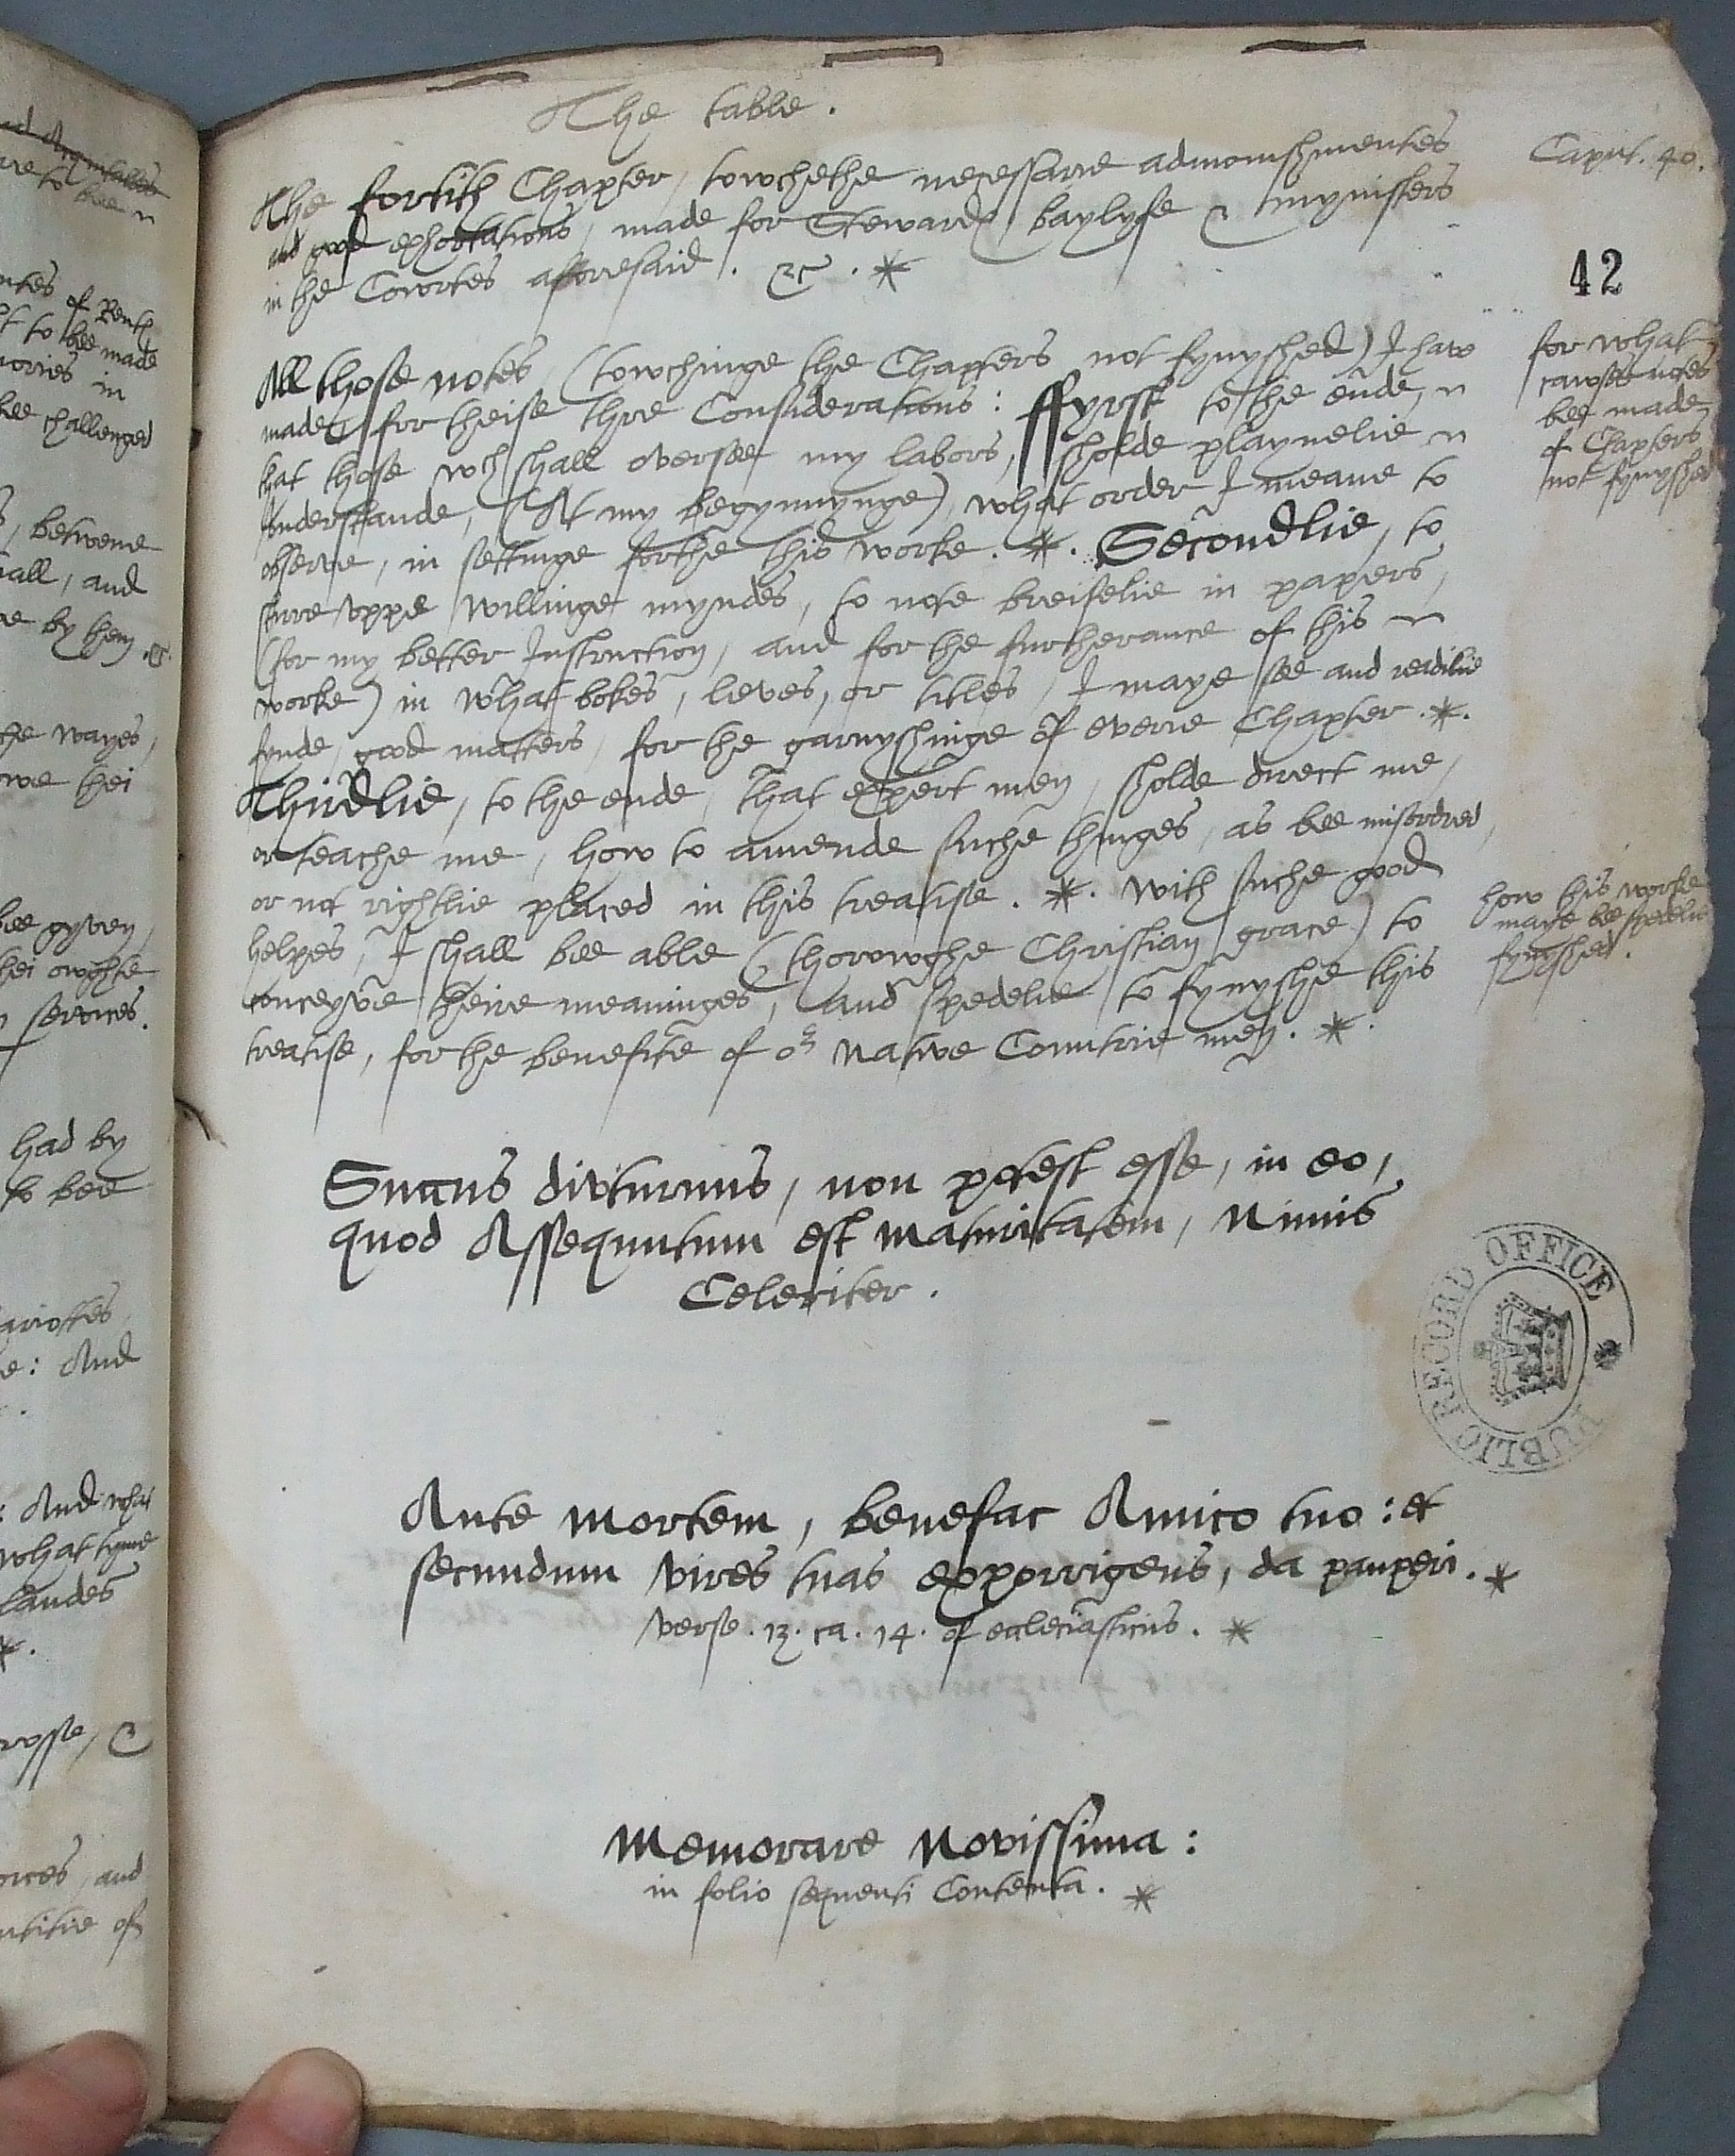 The table.
The fortith Chapter, towchethe necessarie admonishmentes
and good exhortations, made for Stewards, baylyfe & mynisters
in the Cowrtes afforesaid. &c. *
Caput. 40.
42
All those notes, (towchinge the Chapters not fynyshed) I have
made, for theise thre Considerations: ffyrst to the ende,
that those wch shall oversee my labors, sholde playnelie
understande, (At my begynnynge) what order I meane to
observe, in settinge forthe this worke. *. Secondlie, to
sturre uppe willinge myndes, to note breifelie in papers,
(for my better Instruction, and for the furtherance of this
worke) in what bokes, leves, or titles, I maye see and readilie
fynde, good matters, for the garnyshinge of everie Chapter. *.
Thirdlie, to the ende, that expert men, sholde direct me,
or teache me, how to amende suche thinges, as bee misordred,
or not rightlie placed in this treatise. *. With suche good
helpes, I shall bee able (thorowghe Christian grace) to
conceyve theire meaninges, and spedelie to fynyshe this
treatise, for the benefite of or native Countrie men. *.
for what
cawses notes
bee made
of Chapters
not fynyshed
how this worke
maye bee spedelie
fynyshed.
Succus diuturnus, non potest esse, in eo,
quod Assequutum est maturitatem, Nimis
Celeriter.
Ante mortem, benefac Amico tuo: et
secundum vires tuas exporrigens, da pauperi. *
verse. 13. ca. 14. of ecclesiasticus. *
Memorare Novissima:
in folio sequenti Contenta. *
PUBLIC RECORD OFFICE
of Rent
to bee made
in
bee challenged
betwene
all, and
by them &c.
the wayes,
owe thei
bee gyven,
thei owghte
services.
had by
to bee
: And
: And what
what tyme
landes
and
of